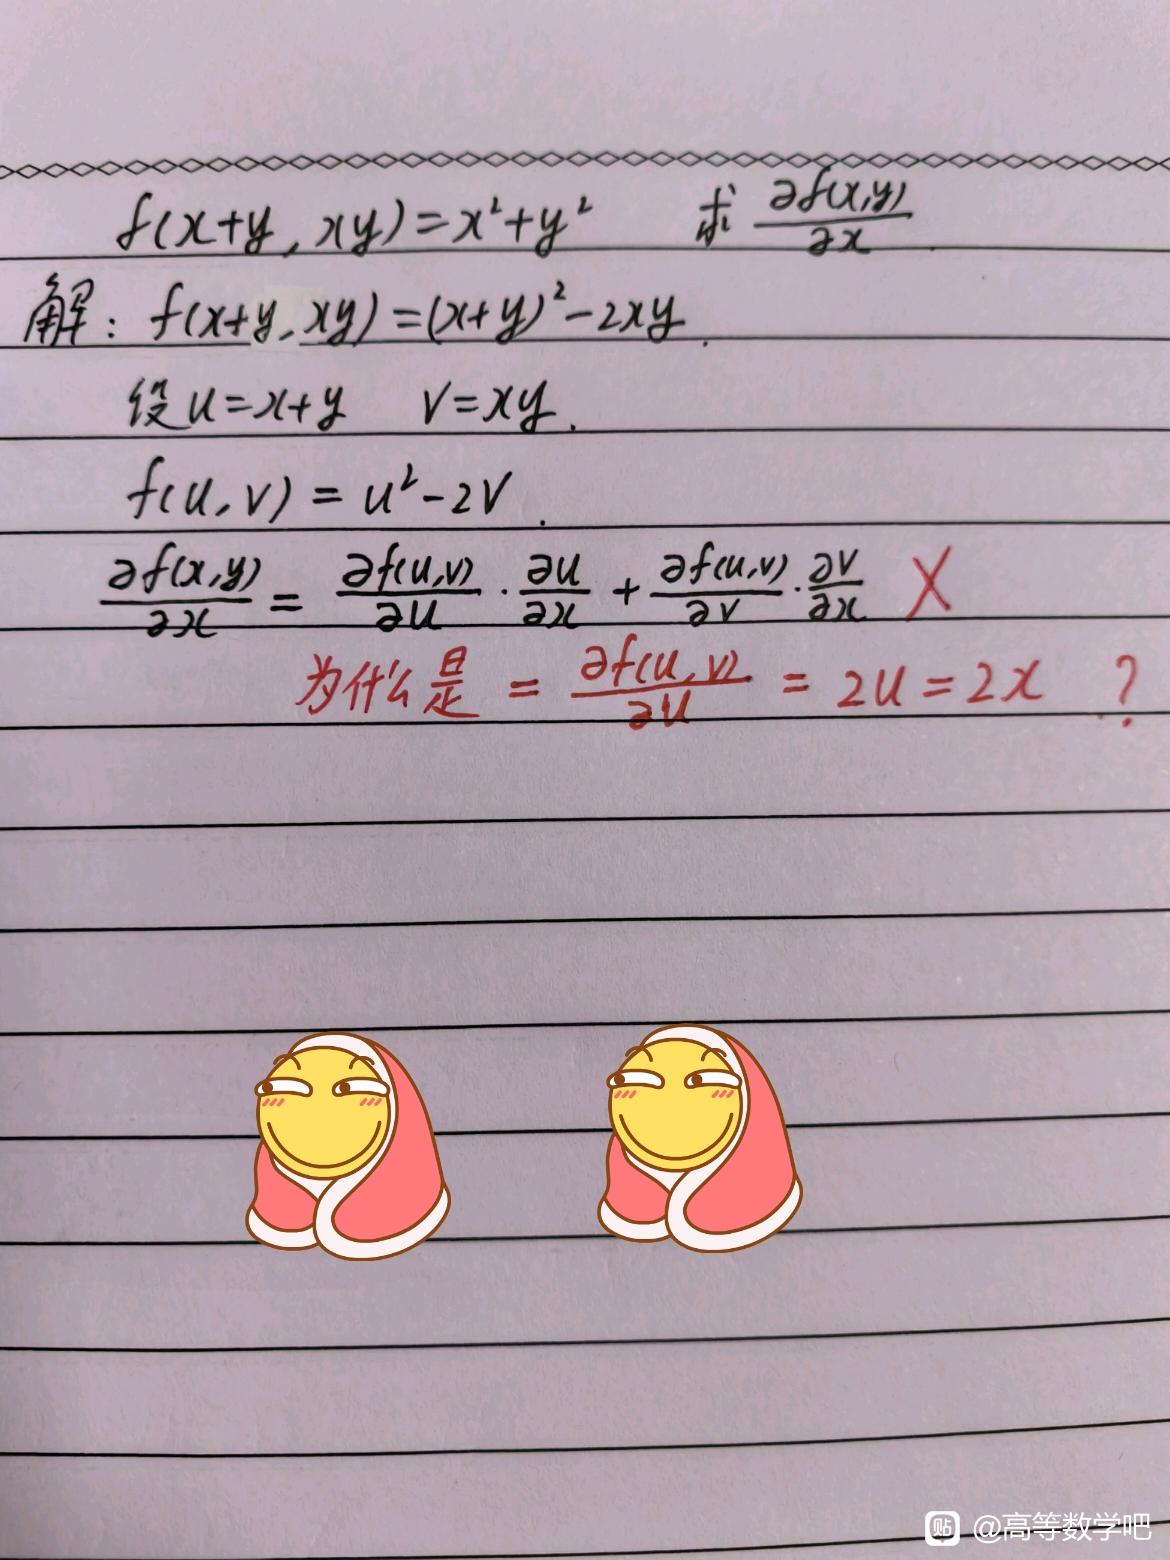 f(x+y, xy)=x²+y² 求 ∂f(x,y)/∂x
解: f(x+y, xy)=(x+y)²-2xy.
设u=x+y v=xy.
f(u,v)=u²-2v.
∂f(x,y)/∂x = ∂f(u,v)/∂u · ∂u/∂x + ∂f(u,v)/∂v · ∂v/∂x ×
为什么是 = ∂f(u,v)/∂u = 2u = 2x ?
贴 @高等数学吧